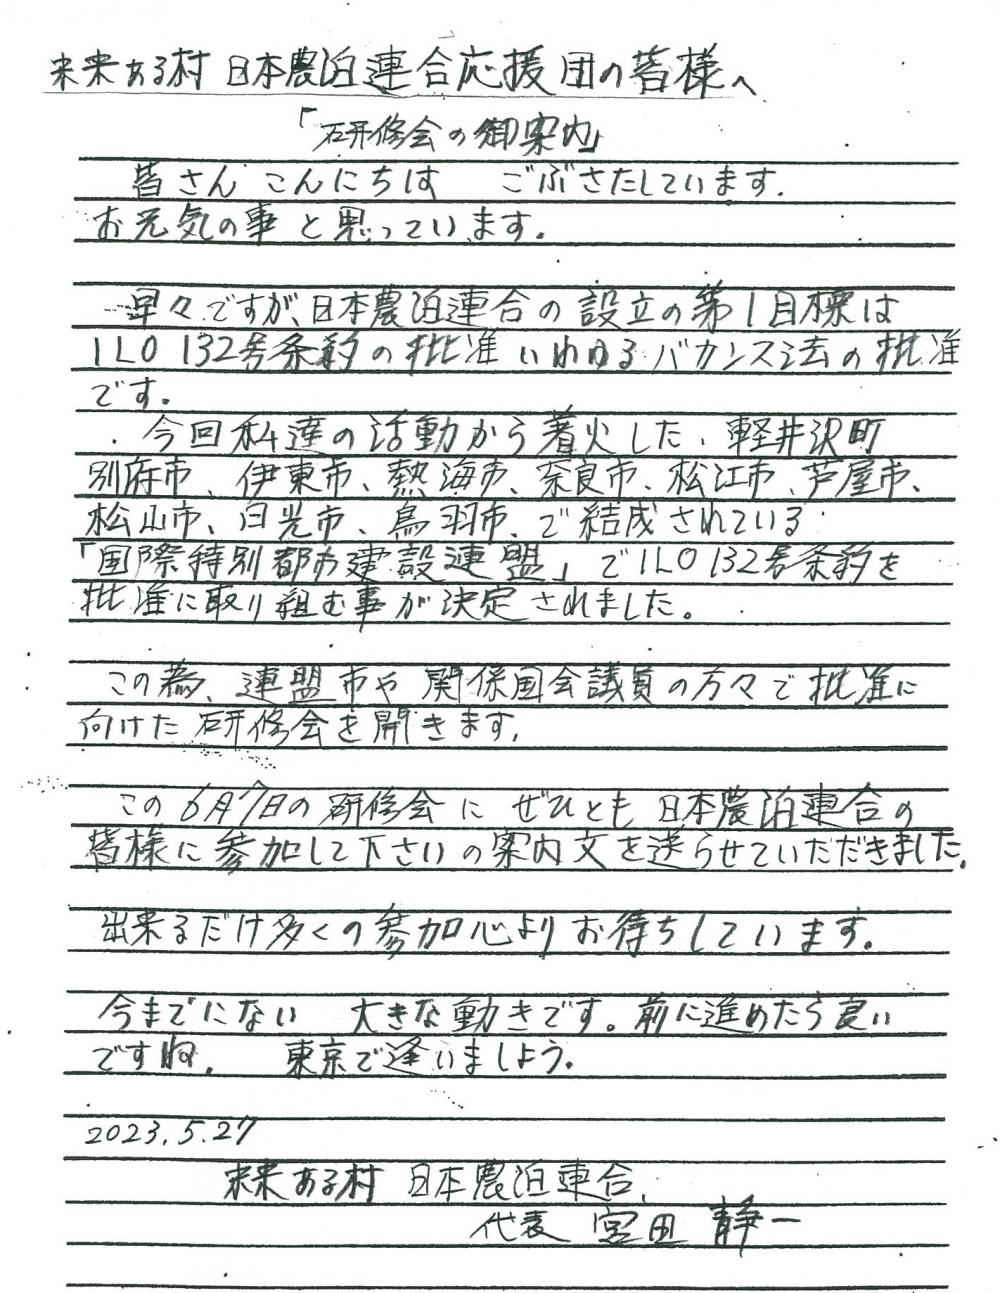 未来ある村 日本農泊連合応援団の皆様へ
「研修会の御案内」
皆さん こんにちは ごぶさたしています.
お元気の事 と思っています.
早々ですが、日本農泊連合の設立の第1目標は
ILO 132号条約の批准 いわゆるバカンス法の批准
です。
今回私達の活動から着火した、軽井沢町
別府市、伊東市、熱海市、奈良市、松江市、芦屋市、
松山市、日光市、鳥羽市、で結成されている
「国際特別都市建設連盟」でILO132号条約を
批准に取り組む事が決定されました。
この為、連盟市や関係国会議員の方々で批准に
向けた研修会を開きます.
この6月7日の研修会に ぜひとも 日本農泊連合の
皆様に参加して下さいの案内文を送らせていただきました.
出来るだけ多くの参加心よりお待ちしています。
今までにない 大きな動きです。前に進めたら良い
ですね. 東京で逢いましよう.
2023.5.27
未来ある村 日本農泊連合
代表 宮田 静一